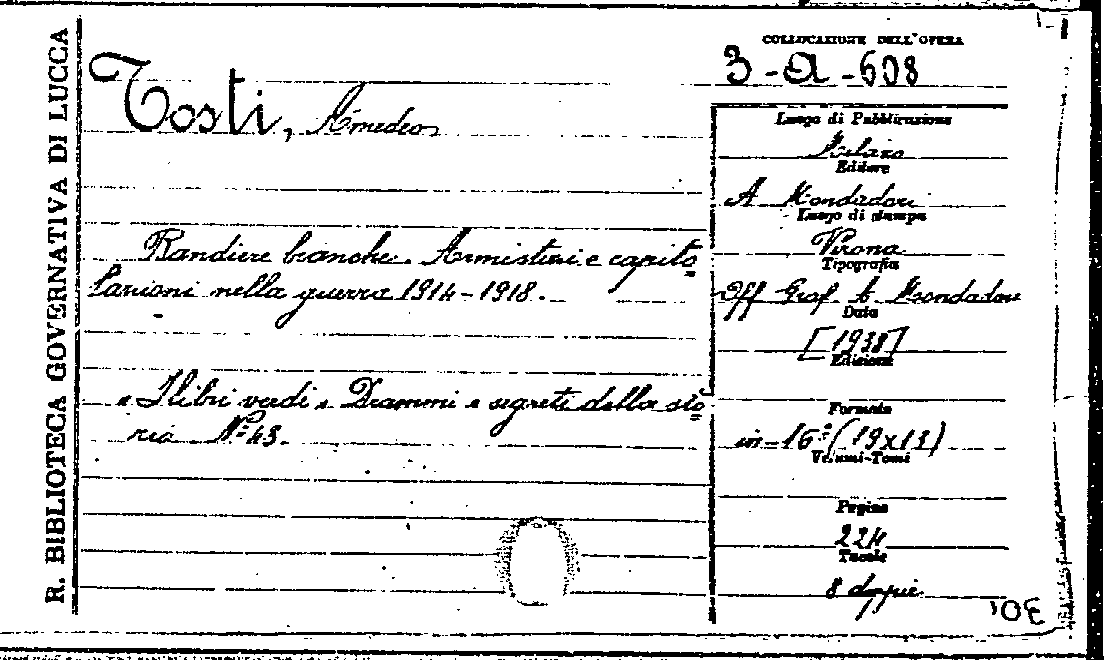 R. BIBLIOTECA GOVERNATIVA DI LUCCA
COLLOCAZIONE DELL'OPERA
3-A-608
Tosti, Amedeo
Bandiere bianche. Armistizi e capito
lazioni nella guerra 1914-1918.
"I libri verdi" Drammi e segreti della sto
ria N° 43.
Luogo di Pubblicazione
Milano
Editore
A Mondadori
Luogo di stampa
Verona
Tipografia
Off Graf A Mondadori
Data
[1938]
Edizione
Formato
in-16° (19x13)
Volumi-Tomi
Pagine
224
Tavole
8 doppie
'30